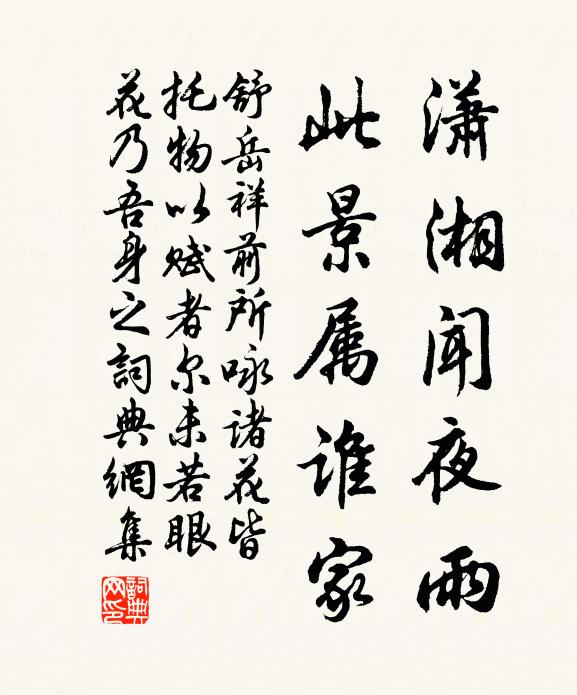 瀟湘闻夜雨
此景属谁家
舒岳祥前所咏诸花皆
托物以赋者尔未若眼
花乃吾身之詞典網集
詞典網印